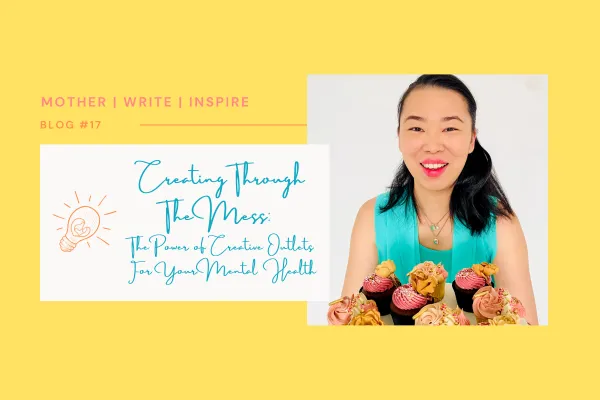 MOTHER | WRITE | INSPIRE
BLOG #17
Creating Through
The Mess:
The Power of Creative Outlets
For Your Mental Health